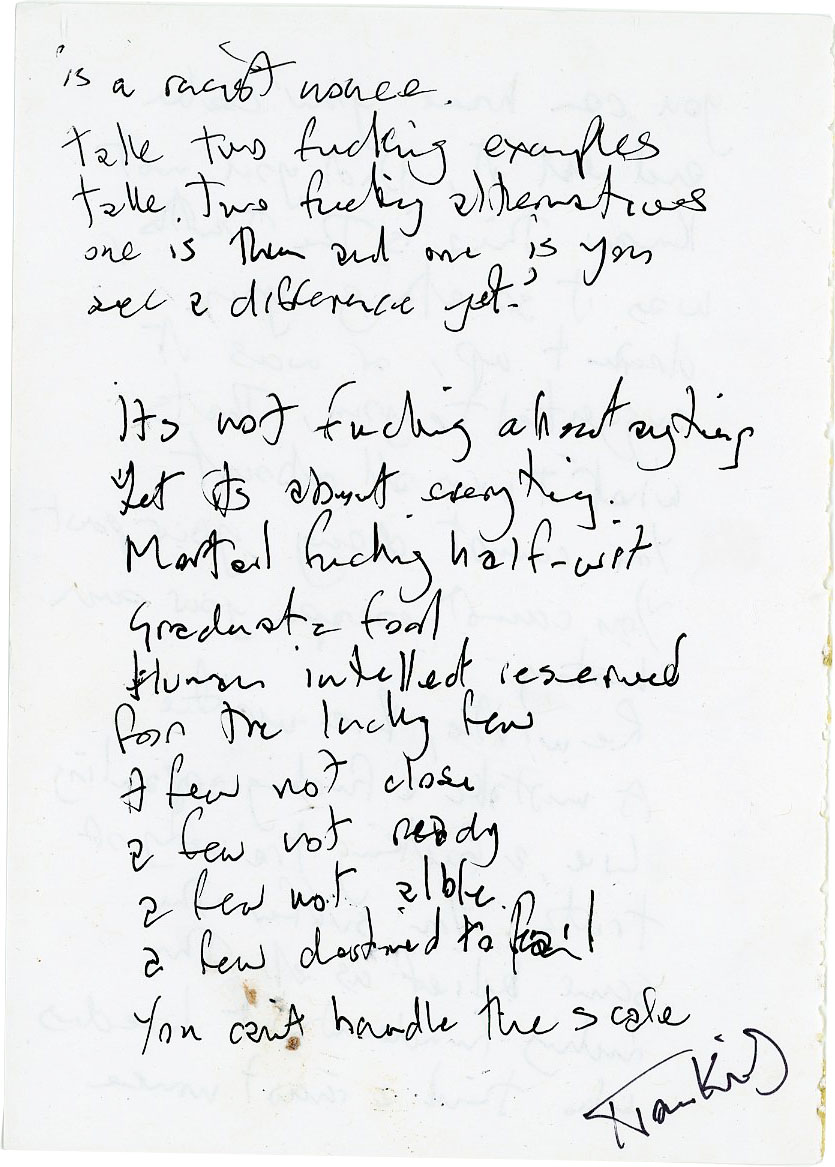 'is a racist nonce.
take two fucking examples
take. two fucking alternatives
one is them and one is you
see a difference yet.'
Its not fucking about anything
Yet its about everything.
Mortal fucking half-wit
Graduate fool
Human intellect reserved
for the lucky few
A few not close
a few not ready
a few not alble.
a few destined to fail
You can't handle the scale